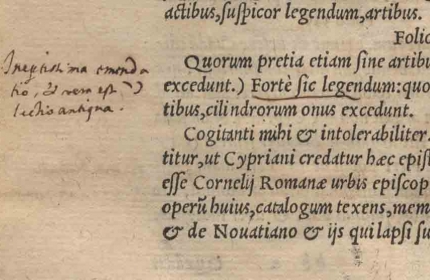 actibus,suspicor legendum,artibus.
Folio
Quorum pretia etiam sine artibu
excedunt.) Fortè sic legendum:quo
tibus,cilindrorum onus excedunt.
Cogitanti mihi & intolerabiliter.
titur,ut Cypriani credatur hæc epist
esse Cornelij Romanæ urbis episcop
operũ huius,catalogum texens,mem
& de Nouatiano & ijs qui lapsi su
Ineptissima emenda
tio, & vera est
lectio antiqua.